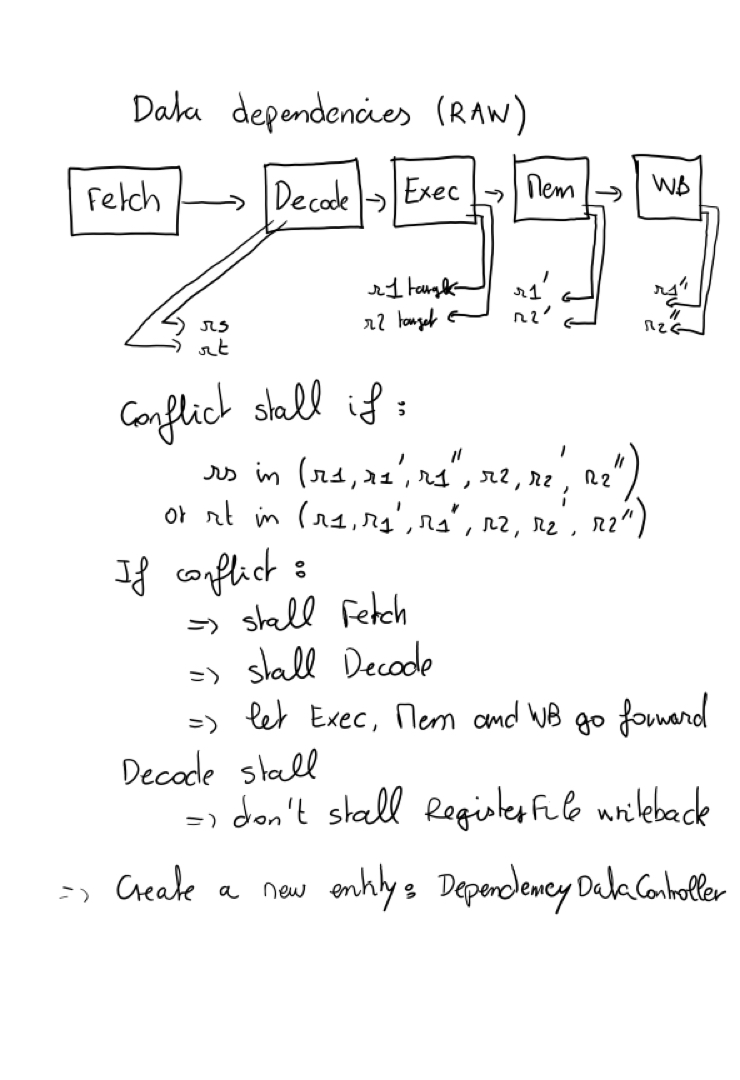 Data dependencies (RAW)
Fetch Decode Exec Mem WB
r1 target r1' r1"
r2 target r2' r2"
rs
rt
Conflict stall if :
rs in (r1, r1', r1", r2, r2', r2")
or rt in (r1, r1', r1", r2, r2', r2")
If conflict :
=> stall Fetch
=> stall Decode
=> let Exec, Mem and WB go forward
Decode stall
=> don't stall RegisterFile writeback
=> Create a new entity : DependencyDataController